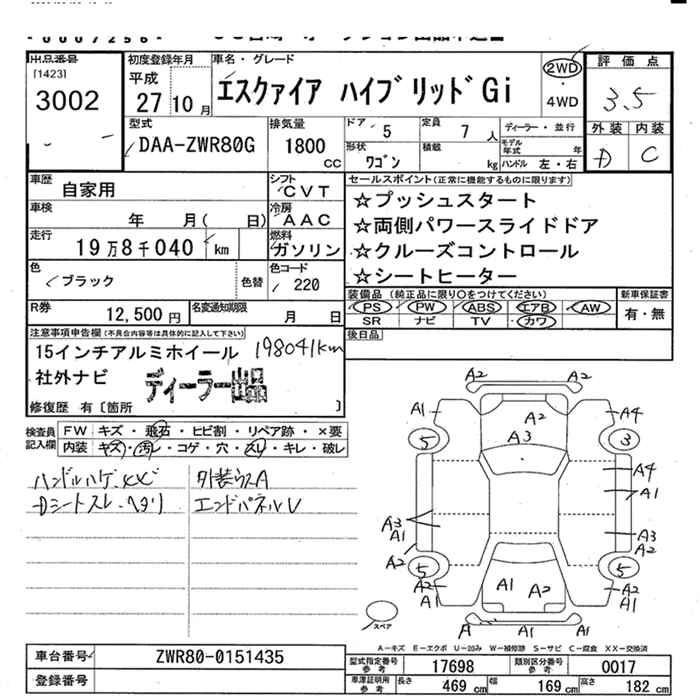 出品番号
[1423]
3002
初度登録年月
平成 27年10月
車名・グレード
エスクァイア ハイブリッドGi
2WD
・
4WD
評価点
3.5
外装 内装
D C
型式
DAA-ZWR80G
排気量
1800 cc
ドア 5
定員 7 人
形状 ワゴン
積載 kg
ディーラー・並行
モデル年式 年
ハンドル 左・右
車歴 自家用
シフト CVT
車検 年 月( 日)
冷房 AAC
走行 19万8千040 km
燃料 ガソリン
色 ブラック 色替
色コード 220
R券 12,500円
名変通知期限 月 日
セールスポイント(正常に機能するものに限ります)
☆プッシュスタート
☆両側パワースライドドア
☆クルーズコントロール
☆シートヒーター
装備品(純正品に限り○をつけてください)
PS PW ABS エアB AW
SR ナビ TV カワ
新車保証書
有・無
後日品
注意事項申告欄(不具合内容等は具体的に記入して下さい)
15インチアルミホイール 198041km
社外ナビ ディーラー出品
修復歴 有〔箇所
検査員記入欄
FW キズ・飛石・ヒビ割・リペア跡・×要
内装 キズ・汚レ・コゲ・穴・スレ・キレ・破レ
ハンドルハゲ
外装ウスA
Dシートスレ・ヘタリ
エンドパネルU
A2 A2
A1 A2 A4
5 A3 3
A4
A1
A3
A1
A3
A2
A2
5 5
A2
A1
A1 A2
A2
A1
A A1 A1
スペア
A-キズ E-エクボ U-凹み W-補修跡 S-サビ C-腐食 XX-交換済
車台番号 ZWR80-0151435
登録番号
型式指定番号 参考 17698
類別区分番号 参考 0017
車庫証明用 参考 長さ 469 cm 幅 169 cm 高さ 182 cm